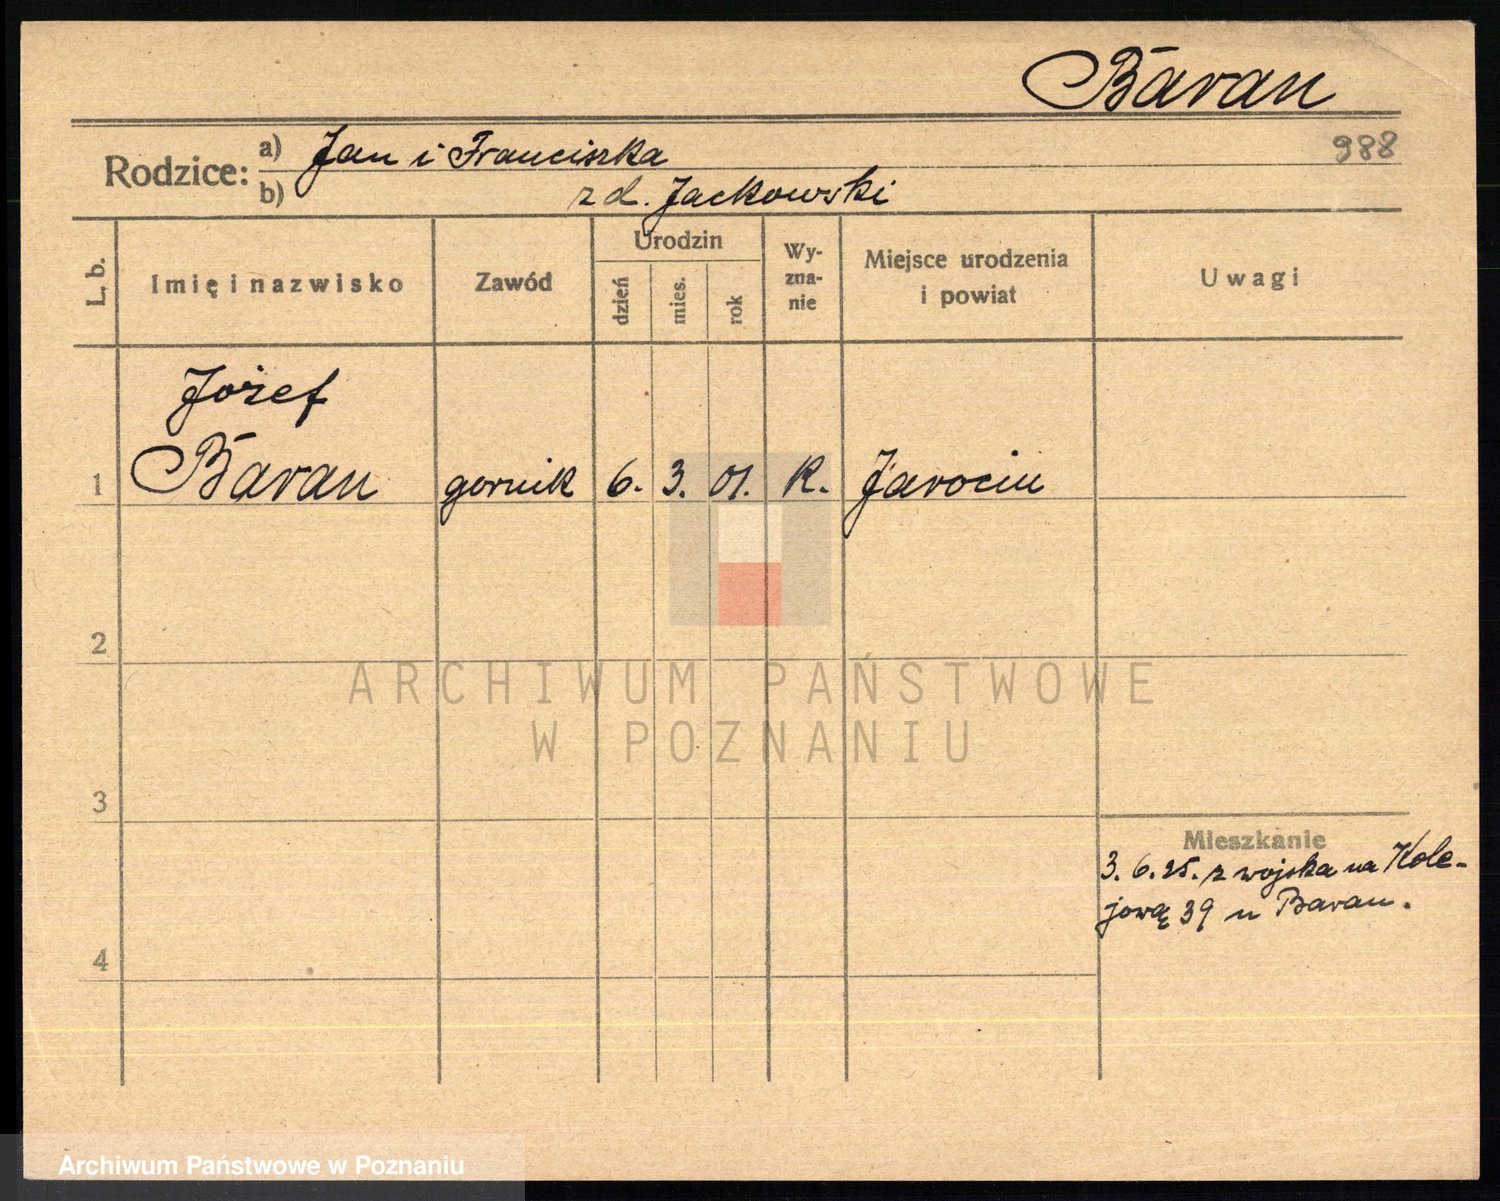 Baran
Rodzice: a) Jan i Franciszka
988
b) z d. Jackowski
L. b.
Imię i nazwisko
Zawód
Urodzin
dzień
mies.
rok
Wy-
zna-
nie
Miejsce urodzenia
i powiat
Uwagi
Józef
1 Baran gornik 6. 3. 01. K. Jarocin
2
ARCHIWUM PAŃSTWOWE
W POZNANIU
3
Mieszkanie
3. 6. 25. z wojska na Kole-
jową 39 u Baran.
4
Archiwum Państwowe w Poznaniu